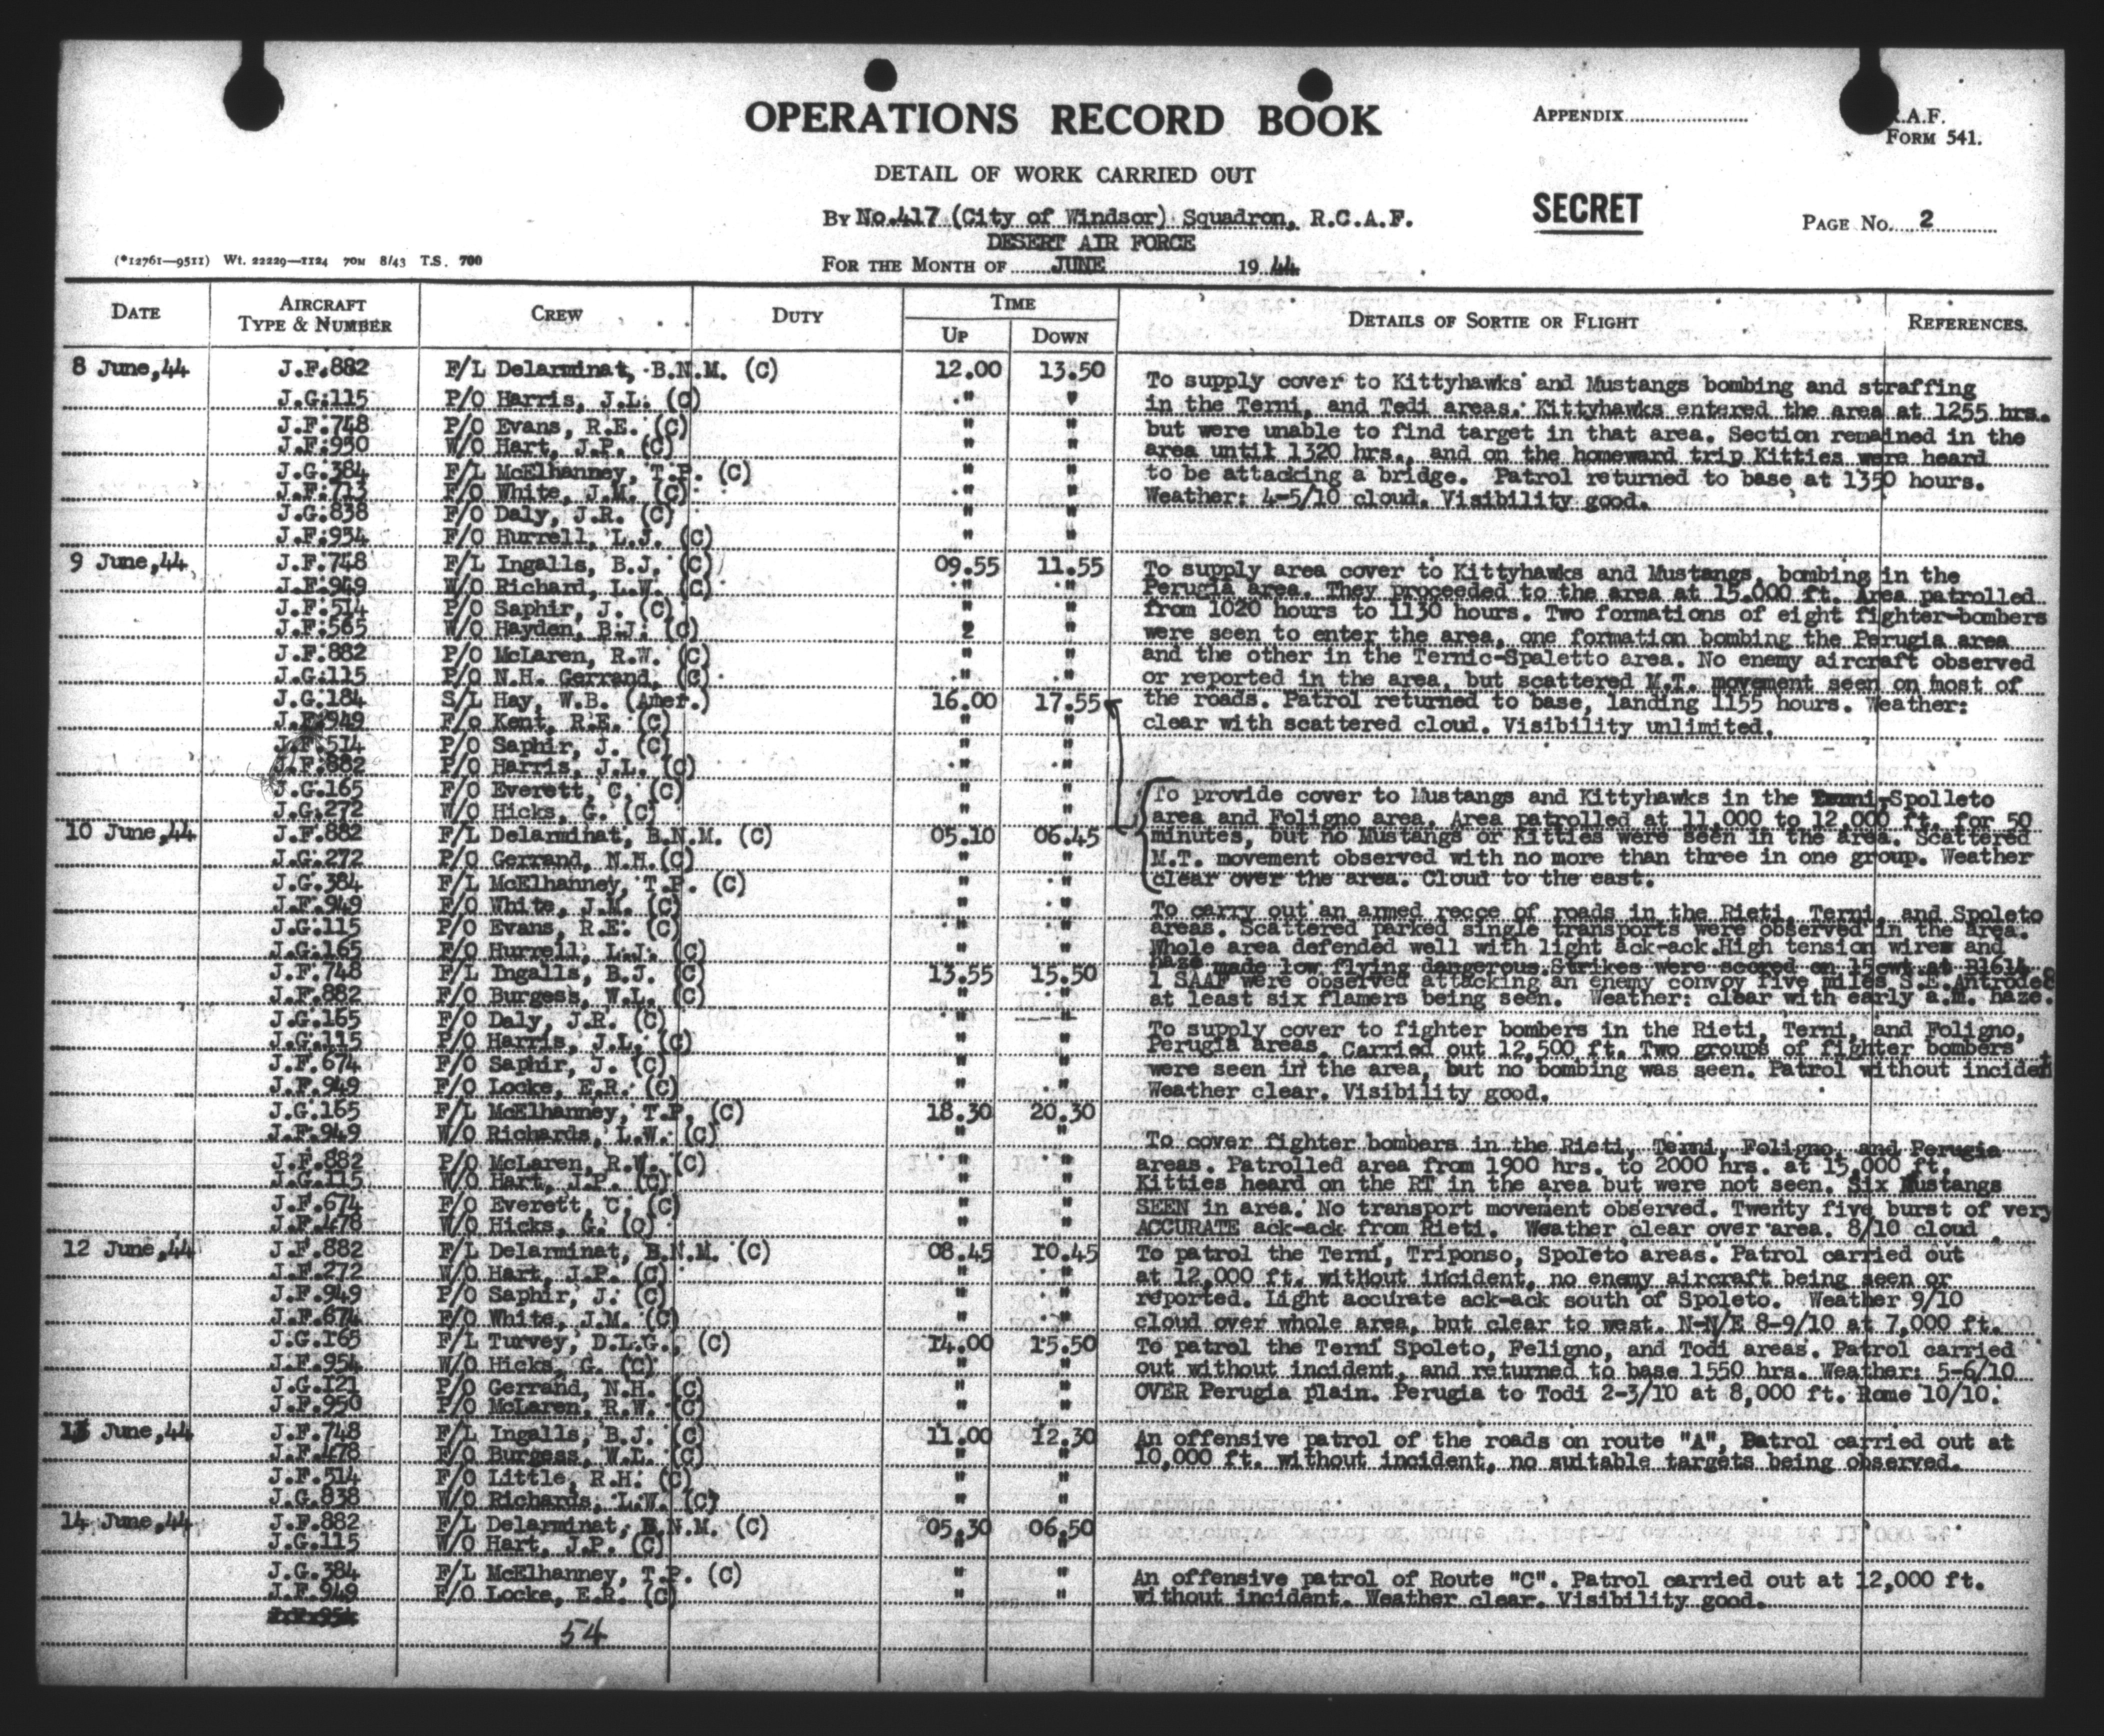 OPERATIONS RECORD BOOK
APPENDIX
R.A.F.
FORM 541.
DETAIL OF WORK CARRIED OUT
SECRET
BY No.417 (City of Windsor) Squadron, R.C.A.F.
PAGE No. 2
DESERT AIR FORCE
(*12761—9511) Wt. 22229—1124 70M 8/43 T.S. 700
FOR THE MONTH OF JUNE 1944
DATE AIRCRAFT TYPE & NUMBER CREW DUTY TIME UP DOWN DETAILS OF SORTIE OR FLIGHT REFERENCES.
8 June,44 J.F.882 F/L Delarminat, B.N.M. (C) 12.00 13.50
J.G.115 P/O Harris, J.L. (C) " "
J.F.748 P/O Evans, R.E. (C) " "
J.F.950 W/O Hart, J.P. (C) " "
J.G.384 F/L McElhanney, T.P. (C) " "
J.F.713 F/O White, J.M. (C) " "
J.G.838 F/O Daly, J.R. (C) " "
J.F.954 F/O Hurrell, L.J. (C) " "
To supply cover to Kittyhawks and Mustangs bombing and straffing
in the Terni, and Tedi areas. Kittyhawks entered the area at 1255 hrs.
but were unable to find target in that area. Section remained in the
area until 1320 hrs., and on the homeward trip Kitties were heard
to be attacking a bridge. Patrol returned to base at 1350 hours.
Weather: 4-5/10 cloud. Visibility good.
9 June,44 J.F.748 F/L Ingalls, B.J. (C) 09.55 11.55
J.F.949 W/O Richard, L.W. (C) " "
J.F.514 P/O Saphir, J. (C) " "
J.F.565 W/O Hayden, B.J. (C) 2 "
J.F.882 P/O McLaren, R.W. (C) " "
J.G.115 P/O N.H. Gerrand, (C) " "
To supply area cover to Kittyhawks and Mustangs, bombing in the
Perugia area. They proceeded to the area at 15.000 ft. Area patrolled
from 1020 hours to 1130 hours. Two formations of eight fighter-bombers
were seen to enter the area, one formation bombing the Perugia area
and the other in the Ternic-Spaletto area. No enemy aircraft observed
or reported in the area, but scattered M.T. movement seen on most of
the roads. Patrol returned to base, landing 1155 hours. Weather:
clear with scattered cloud. Visibility unlimited.
J.G.184 S/L Hay, W.B. (Amer.) 16.00 17.55
J.F.949 F/o Kent, R.E. (C) " "
J.F.514 P/O Saphir, J. (C) " "
J.F.882 P/O Harris, J.L. (C) " "
J.G.165 F/O Everett, C. (C) " "
J.G.272 W/O Hicks, G. (C) " "
To provide cover to Mustangs and Kittyhawks in the Terni,Spolleto
area and Foligno area. Area patrolled at 11,000 to 12,000 ft. for 50
minutes, but no Mustangs or Kitties were seen in the area. Scattered
M.T. movement observed with no more than three in one group. Weather
clear over the area. Cloud to the east.
10 June,44 J.F.882 F/L Delarminat, B.N.M. (C) 05.10 06.45
J.G.272 P/O Gerrand, N.H.(C) " "
J.G.384 F/L McElhanney, T.P. (C) " "
J.F.949 F/O White, J.M. (C) " "
J.G.115 P/O Evans, R.E. (C) " "
J.G.165 F/O Hurrell, L.J. (C) " "
To carry out an armed recce of roads in the Rieti, Terni, and Spoleto
areas. Scattered parked single transports were observed in the area.
Whole area defended well with light ack-ack.High tension wires and
haze made low flying dangerous.Strikes were scored on 15cwt at B1614
1 SAAF were observed attacking an enemy convoy five miles S.E.Antrodec
at least six flamers being seen. Weather: clear with early a.m. haze.
J.F.748 F/L Ingalls, B.J. (C) 13.55 15.50
J.F.882 F/O Burgess, W.L. (C) " "
J.G.165 F/O Daly, J.R. (C) " "
J.G.115 P/O Harris, J.L. (C) " "
J.F.674 F/O Saphir, J. (C) " "
J.F.949 F/O Locke, E.R. (C) " "
To supply cover to fighter bombers in the Rieti, Terni, and Foligno,
Perugia areas. Carried out 12,500 ft. Two groups of fighter bombers
were seen in the area, but no bombing was seen. Patrol without incident
Weather clear. Visibility good.
J.G.165 F/L McElhanney, T.P. (C) 18.30 20.30
J.F.949 W/O Richards, L.W. (C) " "
J.F.882 P/O McLaren, R.W. (C) " "
J.G.115 W/O Hart, J.P. (C) " "
J.F.674 F/O Everett, C. (C) " "
J.F.478 W/O Hicks, G. (C) " "
To cover fighter bombers in the Rieti, Terni, Foligno, and Perugia
areas. Patrolled area from 1900 hrs. to 2000 hrs. at 15,000 ft.
Kitties heard on the RT in the area but were not seen. Six Mustangs
SEEN in area. No transport movement observed. Twenty five burst of very
ACCURATE ack-ack from Rieti. Weather clear over area. 8/10 cloud
12 June,44 J.F.882 F/L Delarminat, B.N.M. (C) 08.45 10.45
J.F.272 W/O Hart, J.P. (C) " "
J.F.949 P/O Saphir, J. (C) " "
J.F.674 F/O White, J.M. (C) " "
To patrol the Terni, Triponso, Spoleto areas. Patrol carried out
at 12,000 ft. without incident, no enemy aircraft being seen or
reported. Light accurate ack-ack south of Spoleto. Weather 9/10
cloud over whole area, but clear to west. N-N/E 8-9/10 at 7,000 ft.
J.G.165 F/L Turvey, D.L.G., (C) 14.00 15.50
J.F.954 W/O Hicks, G. (C) " "
J.G.121 P/O Gerrand, N.H. (C) " "
J.F.950 P/O McLaren, R.W. (C) " "
To patrol the Terni Spoleto, Feligno, and Todi areas. Patrol carried
out without incident, and returned to base 1550 hrs. Weather: 5-6/10
OVER Perugia plain. Perugia to Todi 2-3/10 at 8,000 ft. Rome 10/10.
13 June,44 J.F.748 F/L Ingalls, B.J. (C) 11.00 12.30
J.F.478 F/O Burgess, W.L. (C) " "
J.F.514 F/O Little, R.H. (C) " "
J.G.838 W/O Richards, L.W. (C) " "
An offensive patrol of the roads on route "A", Patrol carried out at
10,000 ft. without incident, no suitable targets being observed.
14 June,44 J.F.882 F/L Delarminat, B.N.M. (C) 05.30 06.50
J.G.115 W/O Hart, J.P. (C) " "
J.G.384 F/L McElhanney, T.P. (C) " "
J.F.949 F/O Locke, E.R. (C) " "
J.F.954
An offensive patrol of Route "C". Patrol carried out at 12,000 ft.
without incident. Weather clear. Visibility good.
54